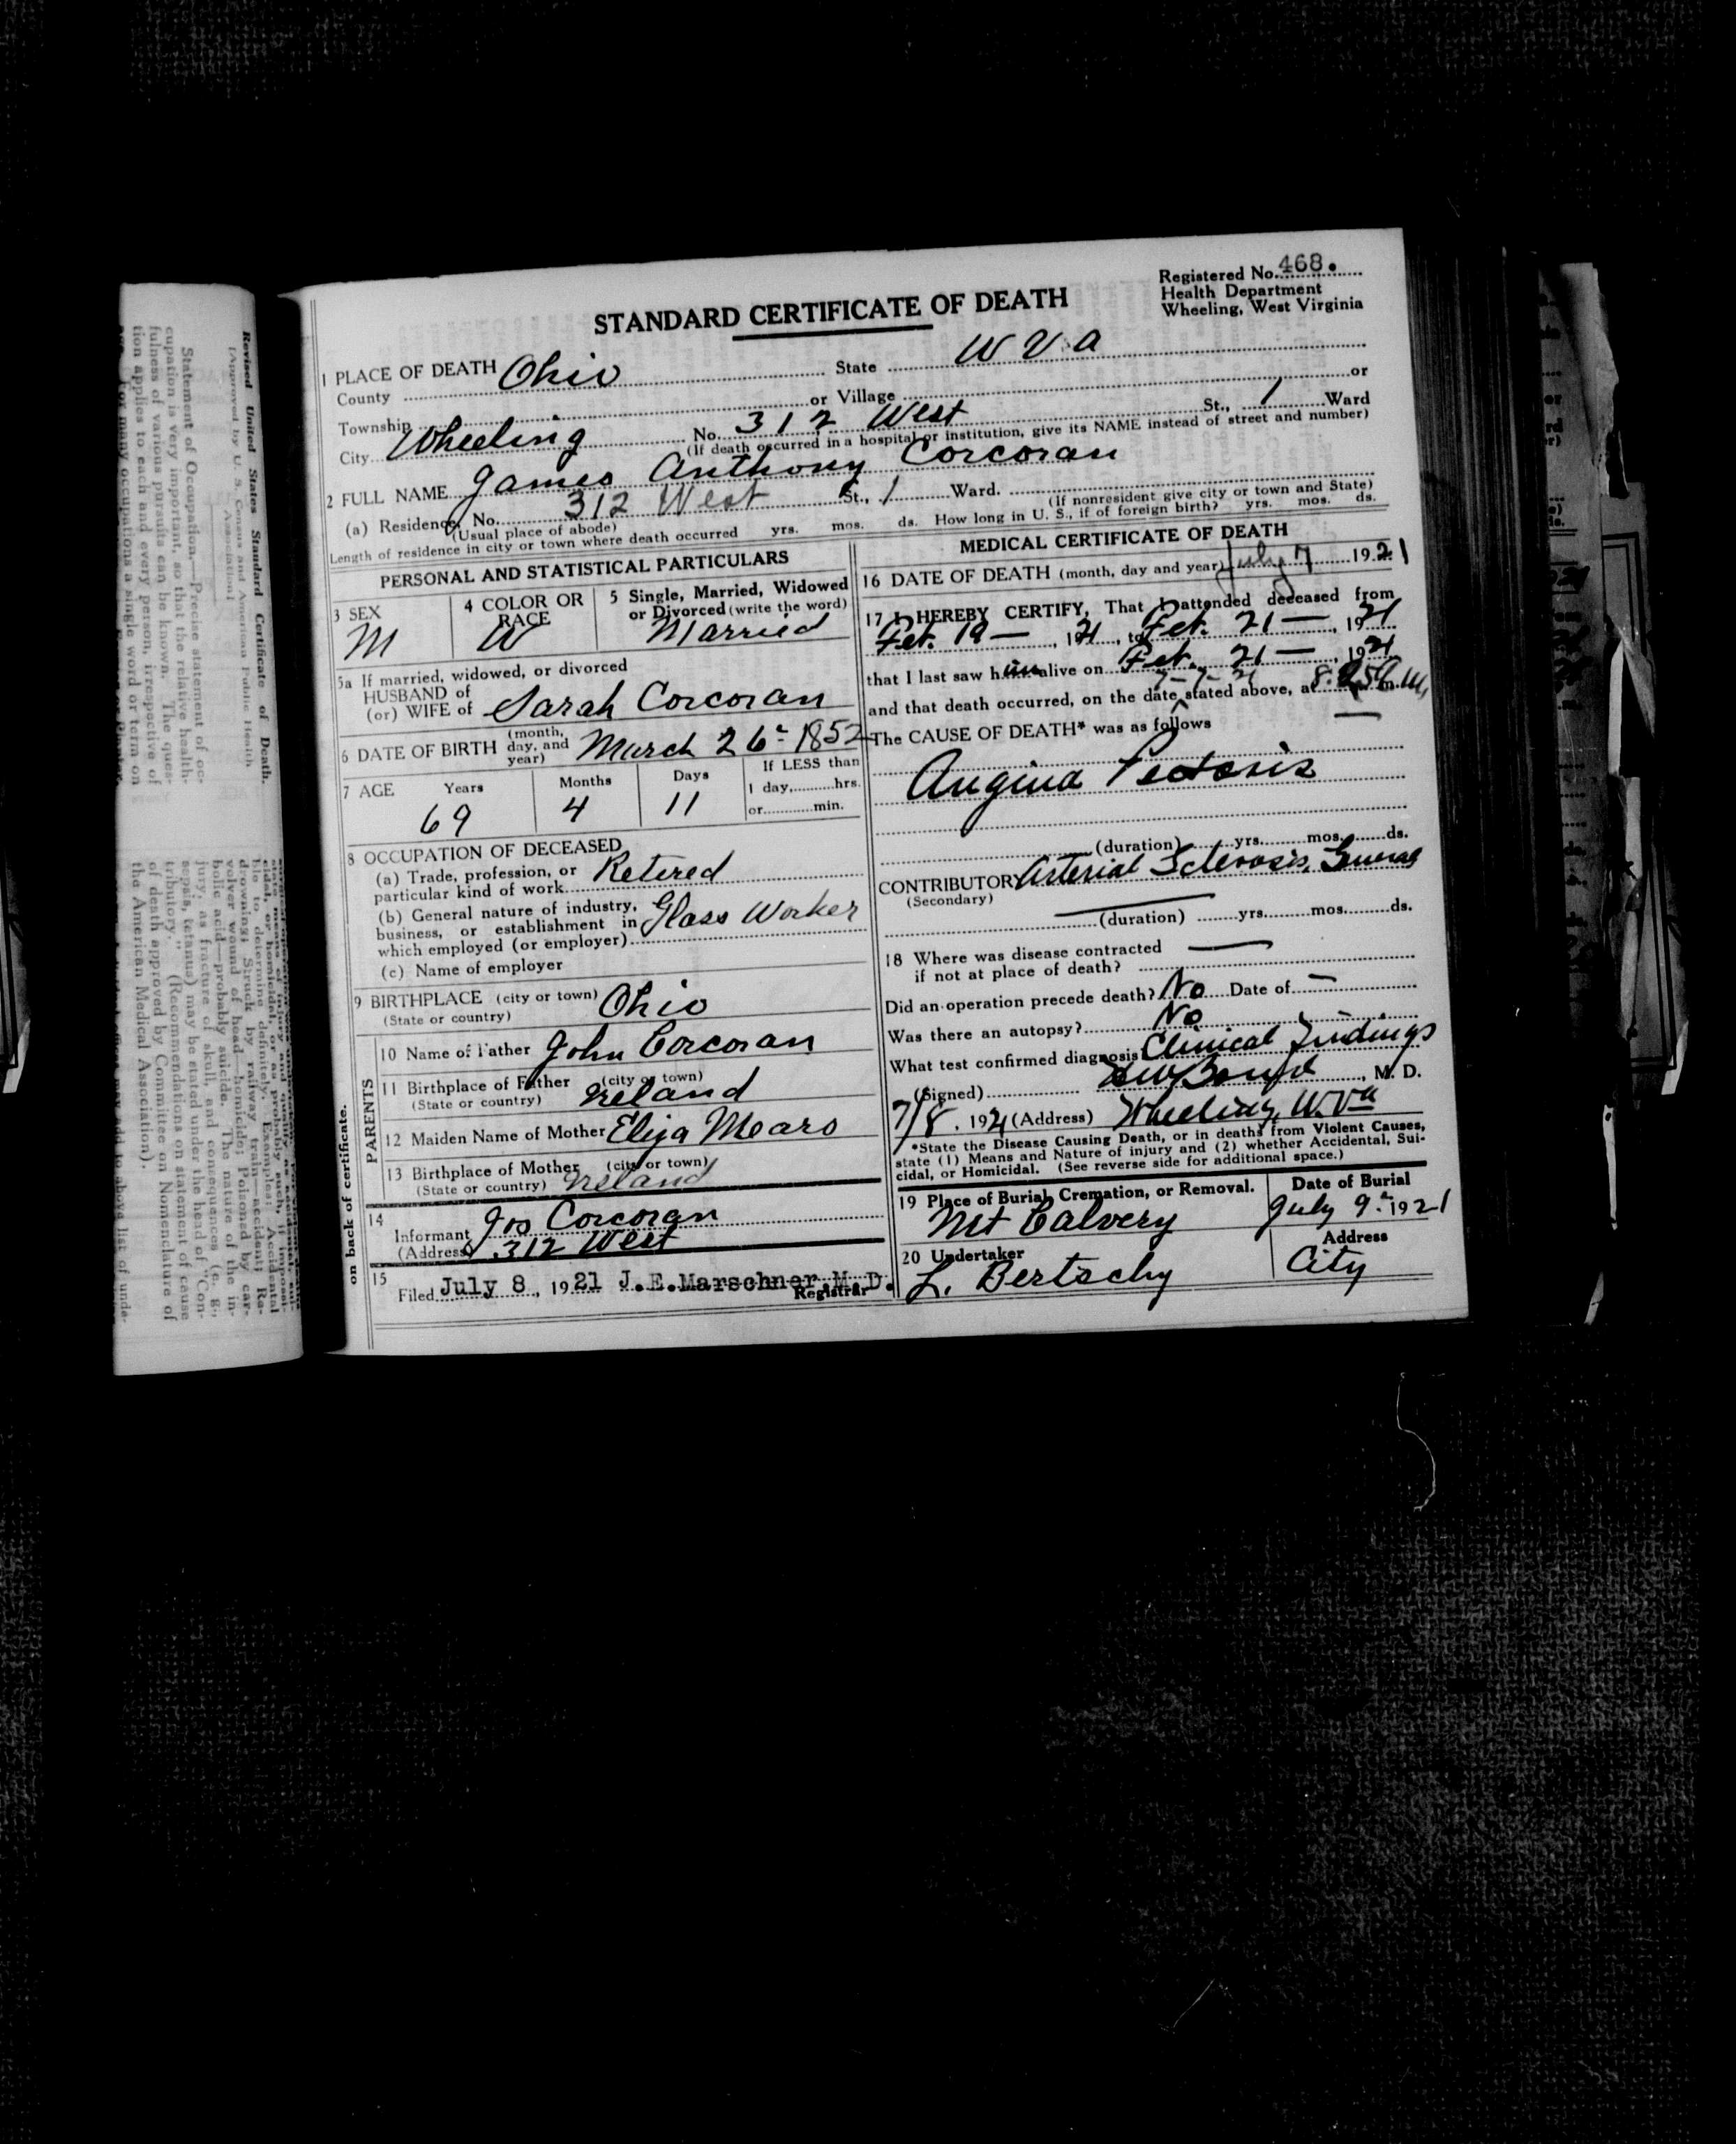 Registered No. 468.
Health Department
Wheeling, West Virginia
STANDARD CERTIFICATE OF DEATH
1 PLACE OF DEATH
County Ohio State W Va
Township or Village or
City Wheeling No. 312 West St., 1 Ward
(If death occurred in a hospital or institution, give its NAME instead of street and number)
2 FULL NAME James Anthony Corcoran
(a) Residence, No. 312 West St., 1 Ward.
(Usual place of abode) (If nonresident give city or town and State)
Length of residence in city or town where death occurred yrs. mos. ds. How long in U. S., if of foreign birth? yrs. mos. ds.
PERSONAL AND STATISTICAL PARTICULARS
3 SEX
M
4 COLOR OR RACE
W
5 Single, Married, Widowed
or Divorced (write the word)
Married
5a If married, widowed, or divorced
HUSBAND of
(or) WIFE of Sarah Corcoran
6 DATE OF BIRTH (month, day, and year) March 26 1852
7 AGE Years Months Days If LESS than
1 day, hrs.
or min.
69 4 11
8 OCCUPATION OF DECEASED
(a) Trade, profession, or
particular kind of work Retered
(b) General nature of industry,
business, or establishment in
which employed (or employer) Glass Worker
(c) Name of employer
9 BIRTHPLACE (city or town) Ohio
(State or country)
PARENTS
10 Name of Father John Corcoran
11 Birthplace of Father (city or town)
(State or country) Ireland
12 Maiden Name of Mother Eliza Mears
13 Birthplace of Mother (city or town)
(State or country) Ireland
14
Informant Jos Corcoran
(Address) 312 West
15
Filed July 8, 1921 J.E.Marschner, M.D.
Registrar
MEDICAL CERTIFICATE OF DEATH
16 DATE OF DEATH (month, day and year) July 7 1921
17 I HEREBY CERTIFY, That I attended deceased from
Feb. 19 —, 1921, to Feb. 21 —, 1921
that I last saw him alive on Feb. 21 —, 1921
7-7-21
and that death occurred, on the date stated above, at
The CAUSE OF DEATH* was as follows
Angina Pectoris
(duration) yrs. mos. ds.
CONTRIBUTORY Arterial Sclerosis, General
(Secondary)
(duration) yrs. mos. ds.
18 Where was disease contracted
if not at place of death? —
Did an operation precede death? No Date of —
Was there an autopsy? No
What test confirmed diagnosis Clinical Findings
(Signed) , M. D.
7/8, 1921 (Address) Wheeling, W. Va
*State the Disease Causing Death, or in deaths from Violent Causes,
state (1) Means and Nature of injury and (2) whether Accidental, Sui-
cidal, or Homicidal. (See reverse side for additional space.)
19 Place of Burial, Cremation, or Removal. Date of Burial
Mt Calvery July 9 1921
20 Undertaker Address
L. Bertschy City
on back of certificate.
Revised United States Standard Certificate of Death.
(Approved by U. S. Census and American Public Health
Association)
Statement of Occupation.—Precise statement of oc-
cupation is very important, so that the relative health-
fulness of various pursuits can be known. The ques-
tion applies to each and every person, irrespective of
age. For many occupations a single word or term on
drowning; Struck by railway train—accident; Re-
volver wound of head—homicide; Poisoned by car-
bolic acid—probably suicide. The nature of the in-
jury, as fracture of skull, and consequences (e. g.,
sepsis, tetanus) may be stated under the head of "Con-
tributory." (Recommendations on statement of cause
of death approved by Committee on Nomenclature of
the American Medical Association).